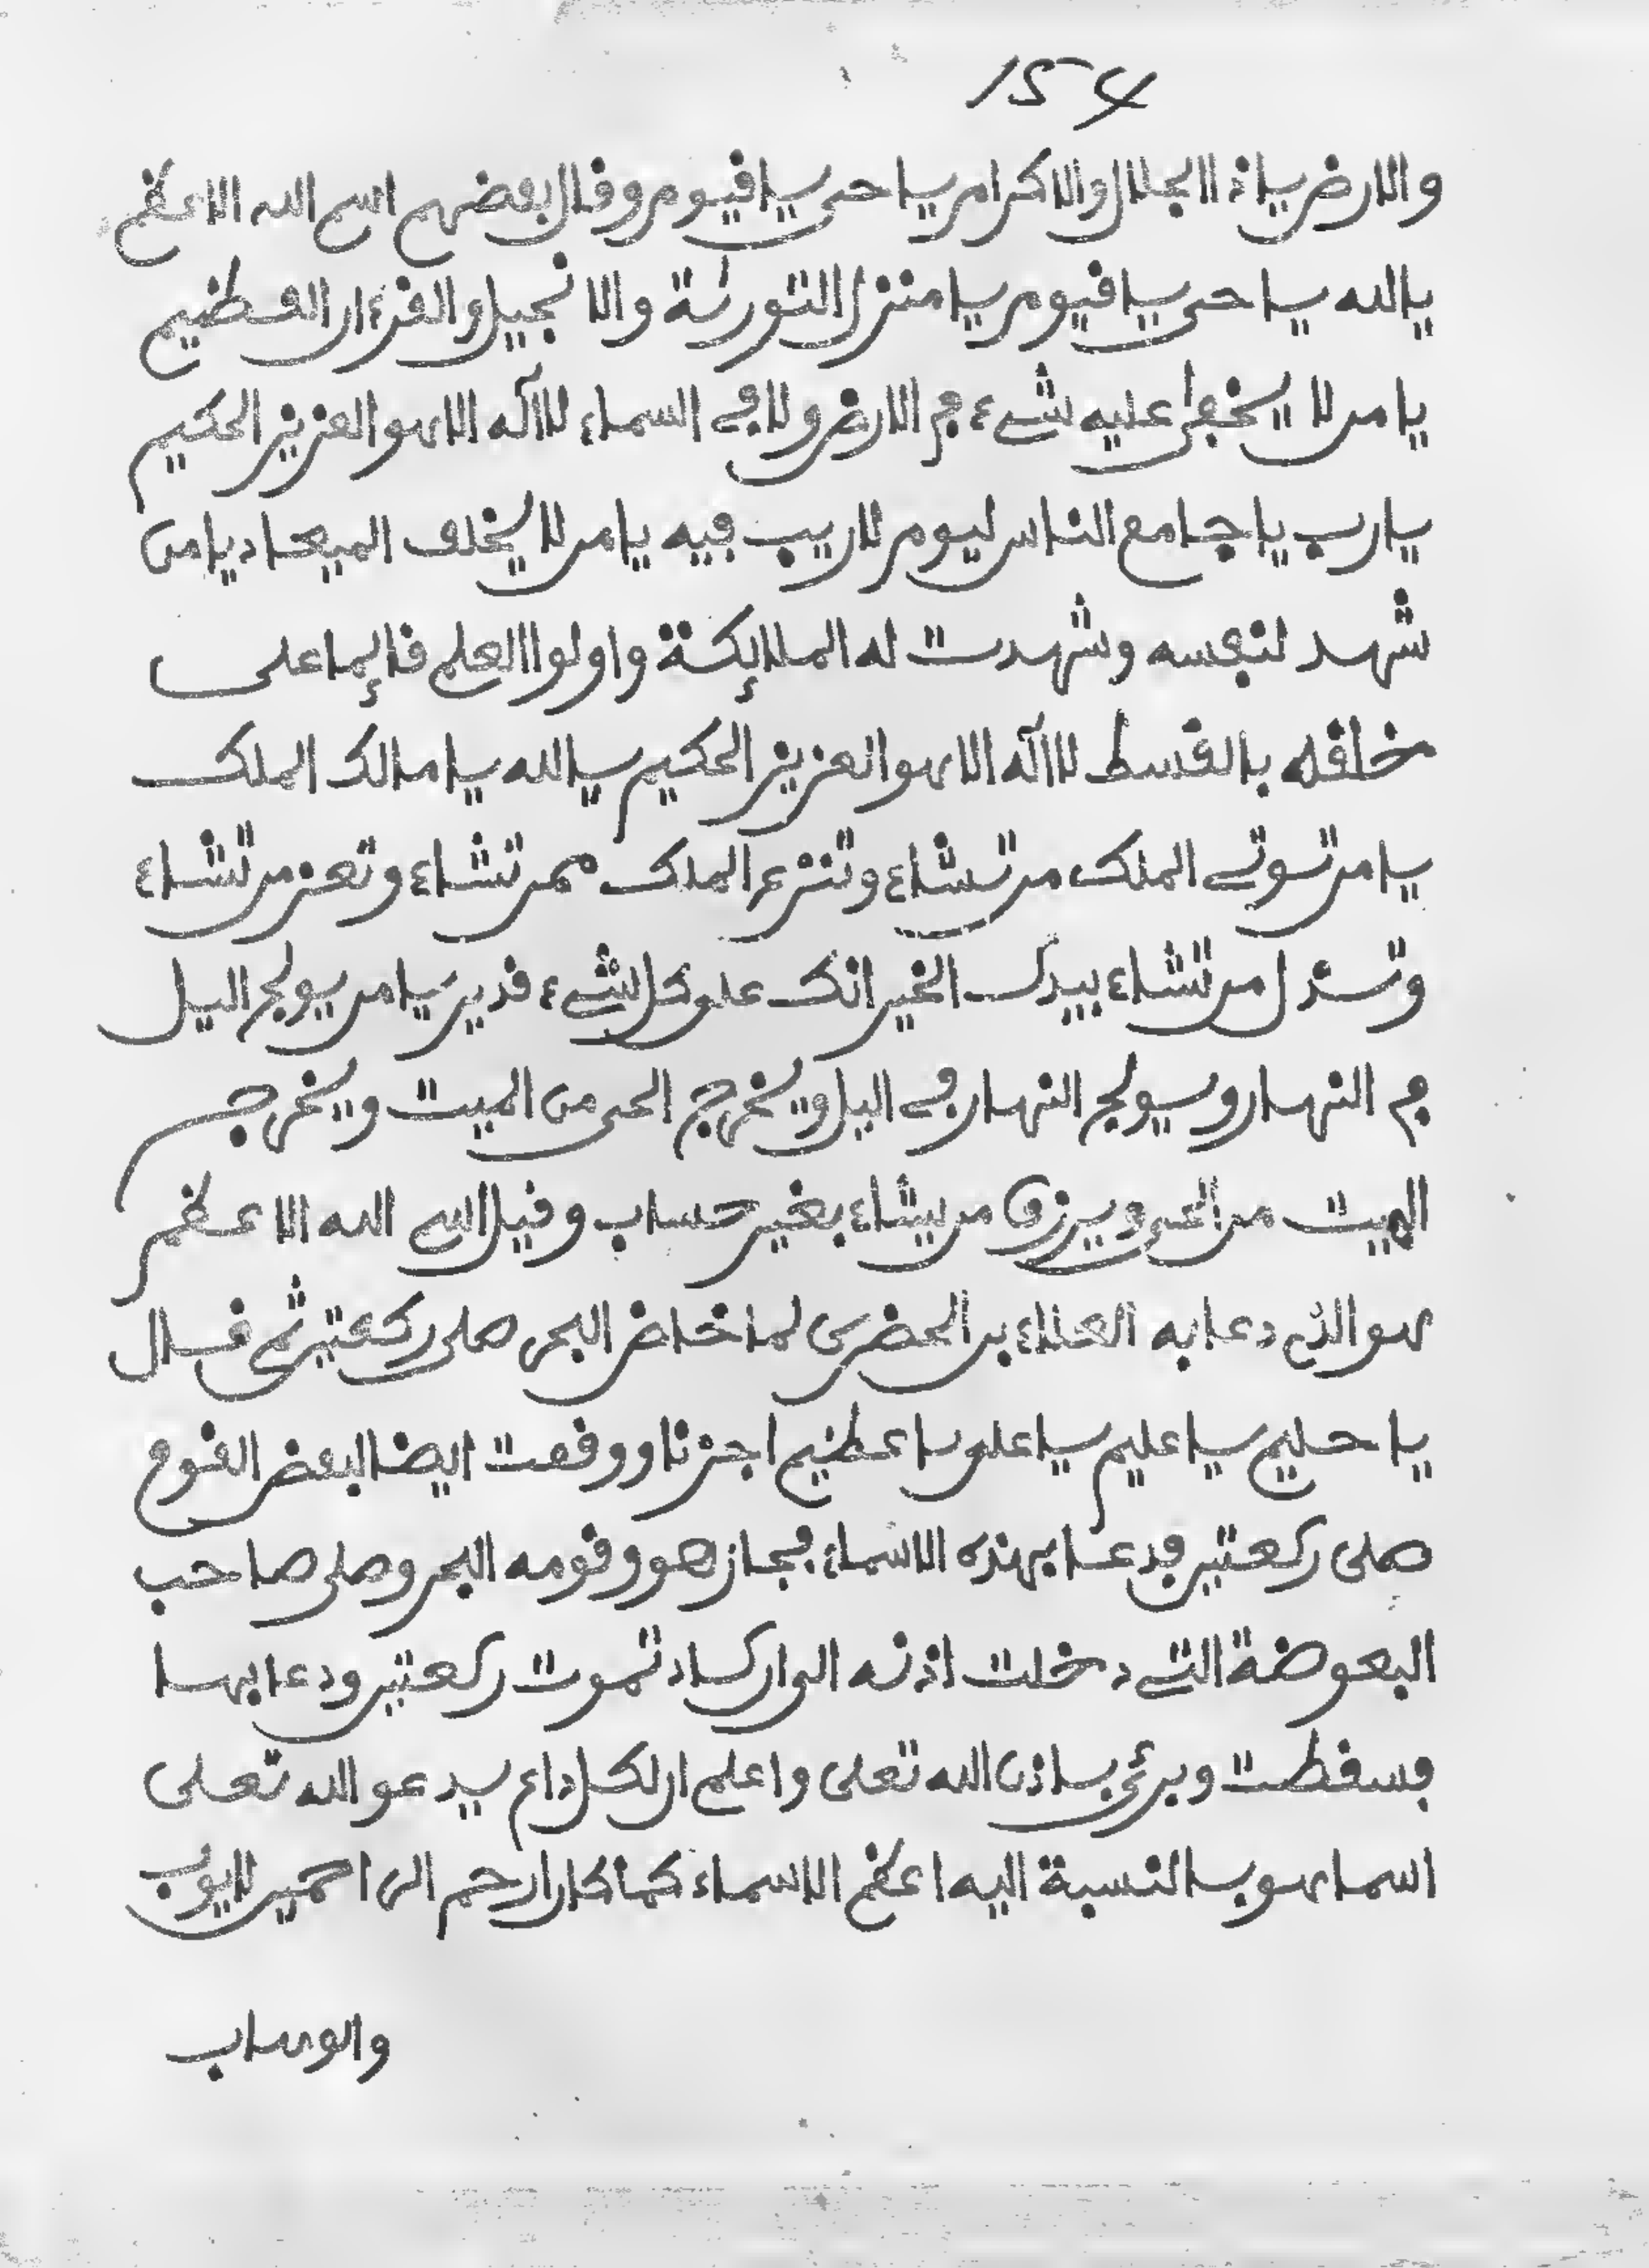 154
والارض ياذا الجلال والاكرام ياحي ياقيوم وقال بعضهم اسم الله الاعظم
يالله ياحي ياقيوم يامنزل التورىة والانجيل والقرءان العظيم
يامن لا يخفى عليه شيء في الارض ولا في السماء لاإله الا هو العزيز الحكيم
يارب ياجامع الناس ليوم لاريب فيه يامن لا يخلف الميعاد يامن
شهد لنفسه وشهدت له الملائكة واولوا العلم قائما على
خلقه بالقسط لاإله الا هو العزيز الحكيم يالله يامالك الملك
يامن توتي الملك من تشاء وتنزع الملك ممن تشاء وتعز من تشاء
وتذل من تشاء بيدك الخير انك على كل شيء قدير يامن يولج اليل
في النهار ويولج النهار في اليل ويخرج الحي من الميت ويخرج
الميت من الحي ويرزق من يشاء بغير حساب وقيل اسم الله الاعظم
هو الذي دعا به العلاء بن الحضرمي لما خاض البحر صلى ركعتين ثم قال
ياحليم ياعليم ياعلي ياعظيم اجزنا ووقعت ايضا لبعض القوم
صلى ركعتين فدعا بهذه الاسماء فجاز هو وقومه البحر وصلى صاحب
البعوضة التي دخلت اذنه الى ان كاد تموت ركعتين ودعا بها
فسقطت وبرئ باذن الله تعلى واعلم ان لكل داع يدعو الله تعلى
اسما هو بالنسبة اليه اعظم الاسماء كما كان ارحم الراحمين لايوب
والوهاب